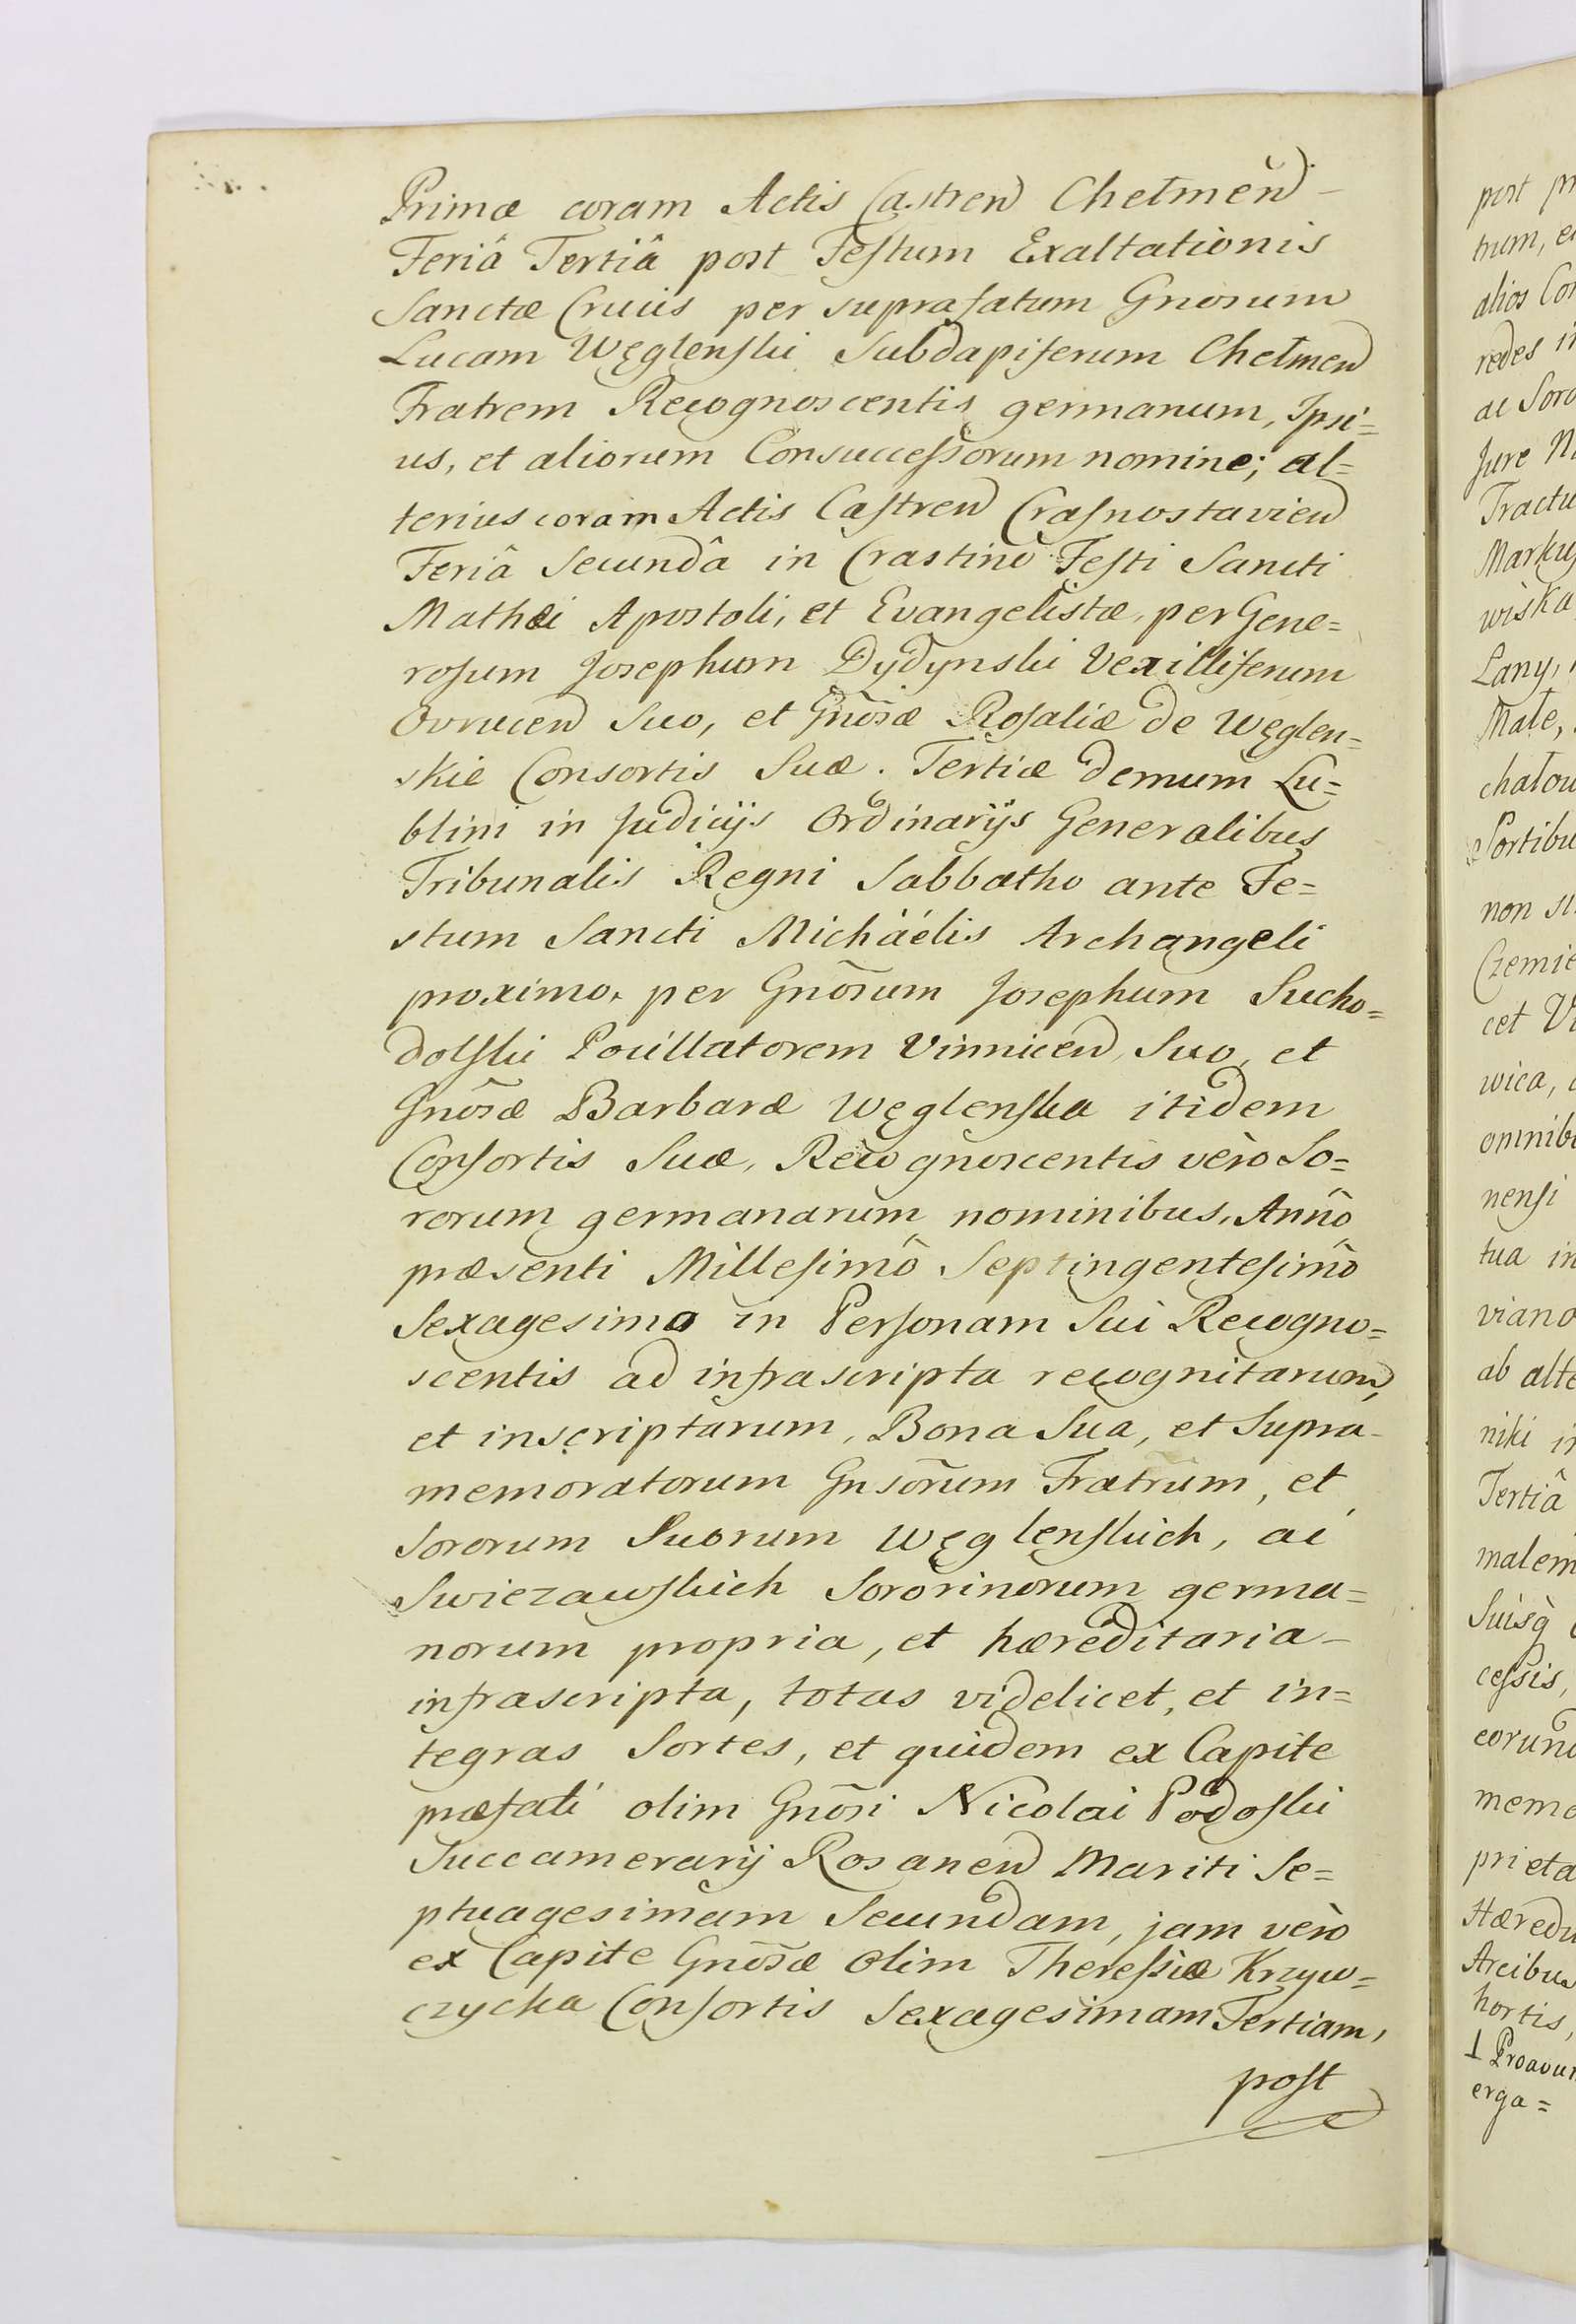 Primæ coram Actis Castren Chełmen̄ –
Feriâ Tertiâ post Festum Exaltationis
Sanctæ Crucis per suprafatum Gnosum
Lucam Węglenski Subdapiferum Chełmen
Fratrem Recognoscentis germanum, Ipsi=
us, et aliorum Consuccessorum nomine; al=
terius coram Actis Castren Crasnostavien
Feriâ Secundâ in Crastino Festi Sancti
Mathæi Apostoli, et Evangelistæ, per Gene=
rosum Josephum Dydynski Vexilliferum
Ovrucen Suo, et Gnõsæ Rosaliæ de Węglen=
skie Consortis Suæ. Tertiæ demum Lu=
blini in Judicijs Ordinarijs Generalibus
Tribunalis Regni Sabbatho ante Fe=
stum Sancti Michäélis Archangeli
proximo, per Gnõsum Josephum Sucho=
dolski Pocillatorem Vinnicen, Suo, et
Gnõsæ Barbaræ Węglenska itidem
Consortis Suæ, Recognoscentis vèro So=
rorum germanarum nominibus, Annô
præsenti Millesimô Septingentesimô
Sexagesimo in Personam Sui Recogno=
scentis ad infrascripta recognitarum,
et inscriptarum, Bona Sua, et Supra-
memoratorum Gnsõrum Fratrum, et
Sororum Suorum Węglenskich, ac
Swiezawskich Sororinorum germa=
norum propria, et hæreditaria –
infrascripta, totas videlicet, et in=
tegras Sortes, et quidem ex Capite
præfati olim Gnõsi Nicolai Podoski
Succamerarij Rosanen Mariti Se=
ptuagesimam Secundam, jam vèro
ex Capite Gnõsæ olim Theressiæ Krzyw=
czycka Consortis Sexagesimam Tertiam,
post
post
trum,
alios
redes
ac
Jure
Lany,
Małe,
non
cet
wica,
nensi
tua in
ab
niki
Tertiâ
Suisq̀
cessis,
hortis,
erga=